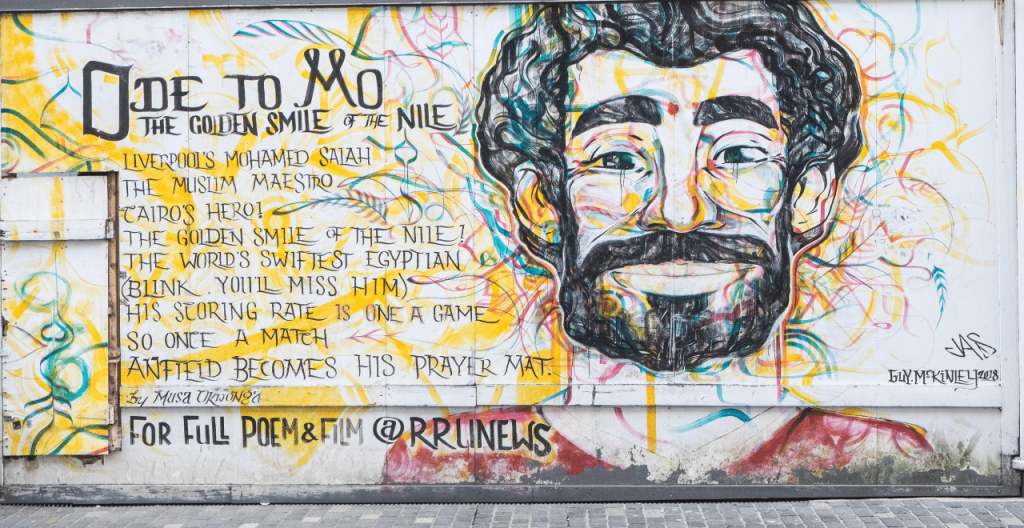 ODE TO MO
THE GOLDEN SMILE OF THE NILE
LIVERPOOL'S MOHAMED SALAH
THE MUSLIM MAESTRO
CAIRO'S HERO!
THE GOLDEN SMILE OF THE NILE!
THE WORLD'S SWIFTEST EGYPTIAN
(BLINK YOU'LL MISS HIM)
HIS SCORING RATE IS ONE A GAME
SO ONCE A MATCH
ANFIELD BECOMES HIS PRAYER MAT.
by MUSA OKWONGA
FOR FULL POEM & FILM @RRUNEWS
GUY.MCKINLEY 2018